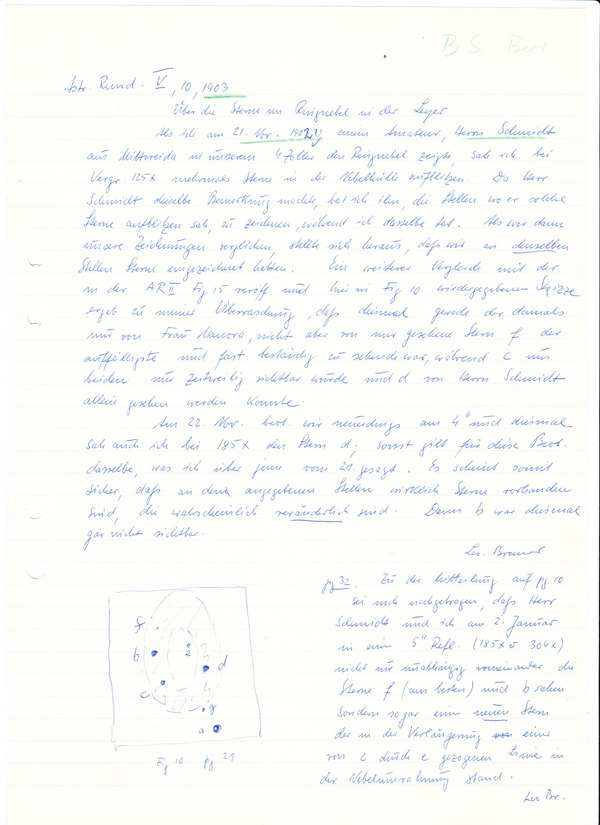 B S Beob
Astr. Rund. V, 10, 1903
Über die Sterne im Ringnebel in der Leyer
Als ich am 21. Nov. 1902 einem Amateur, Herrn Schmidt
aus Mittweida in unserem 4 Zöller den Ringnebel zeigte, sah ich bei
Vergr. 125x mehrmals Sterne in der Nebelhülle aufblitzen. Da Herr
Schmidt dieselbe Bemerkung machte, bat ich ihn, die Stellen wo er solche
Sterne aufblitzen sah, zu zeichnen, während ich dasselbe tat. Als wir dann
unsere Zeichnungen verglichen, stellte sich heraus, daß wir an denselben
Stellen Sterne eingezeichnet hatten. Ein weiterer Vergleich mit der
in der AR II Fig 15 veröff und hier in Fig 10 wiedergegebenen Skizze
ergab zu meiner Überraschung, daß diesmal gerade der damals
nur von Frau Manora, nicht aber von mir gesehene Stern f der
auffälligste und fast beständig zu sehende war, während c uns
beiden nur zeitweilig sichtbar wurde und d von Herrn Schmidt
allein gesehen werden konnte.
Am 22. Nov. beob. wir neuerdings am 4" und diesmal
sah auch ich bei 185x den Stern d; sonst gilt für diese Beob.
dasselbe, was ich über jene vom 21. gesagt. Es scheint somit
sicher, daß an den angegebenen Stellen wirklich Sterne vorhanden
sind, die wahrscheinlich veränderlich sind. Denn b war diesmal
gar nicht sichtbar.
Leo Brenner
pg 32. Zu der Mitteilung auf pg 10
sei noch nachgetragen, daß Herr
Schmidt und ich am 2. Januar
in einem 5" Refl. (185x u. 304x)
nicht nur unabhängig voneinander die
Sterne f (am besten) und b sahen
sondern sogar einen neuen Stern
der in der Verlängerung einer
von c durch e gezogenen Linie in
der Nebelumrahmung stand.
Leo Br.
f
b
e
d
c
g
a
Fig 10 pg 21